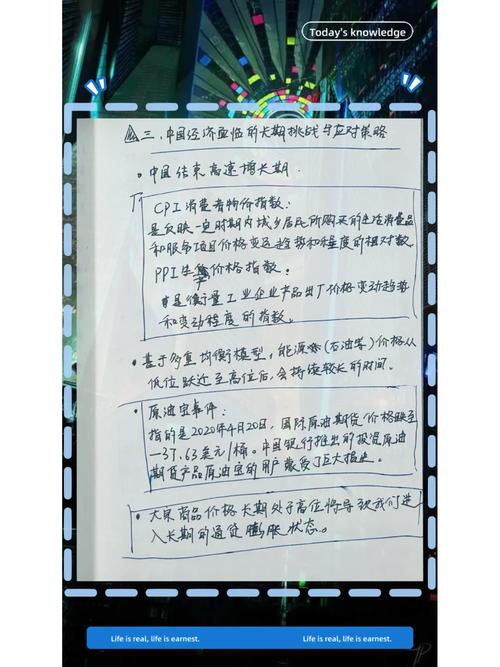 Today's knowledge
三、中国经济面临的长期挑战与应对策略
中国结束高速增长期.
CPI消费者物价指数:
是反映一定时期内城乡居民所购买的生活消费品
和服务项目价格变动趋势和程度的相对数
PPI生产价格指数:
是衡量工业企业产品出厂价格变动趋势
和变动程度的指数。
基于多重均衡模型,能源(石油等)价格从
低位跃迁至高位后,会持续较长的时间.
原油宝事件:
指的是2020年4月20日,国际原油期货价格跌至
-37.63美元/桶。中国银行推出的投资原油
期货产品原油宝的用户蒙受了巨大损失。
大宗商品价格长期处于高位将导致我们进
入长期的通货膨胀状态。
Life is real, life is earnest.
Life is real, life is earnest.